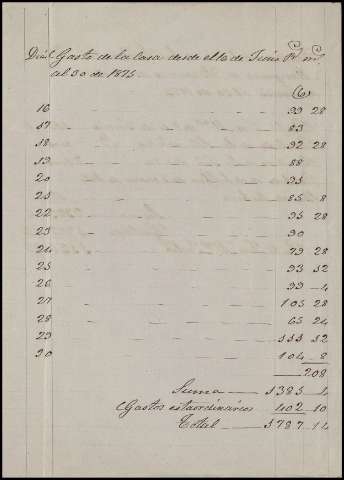 Dias Gasto de la Casa desde el 16 de Junio Rs ms
al 30 de 1875
(6)
16 99 28
17 83
18 92 28
19 88
20 95
21 85 8
22 95 28
23 90
24 79 28
25 93 32
26 99 4
27 105 28
28 65 24
29 111 12
30 104 8
208
Suma 1385 4
Gastos estraordinarios 402 10
Total 1787 14